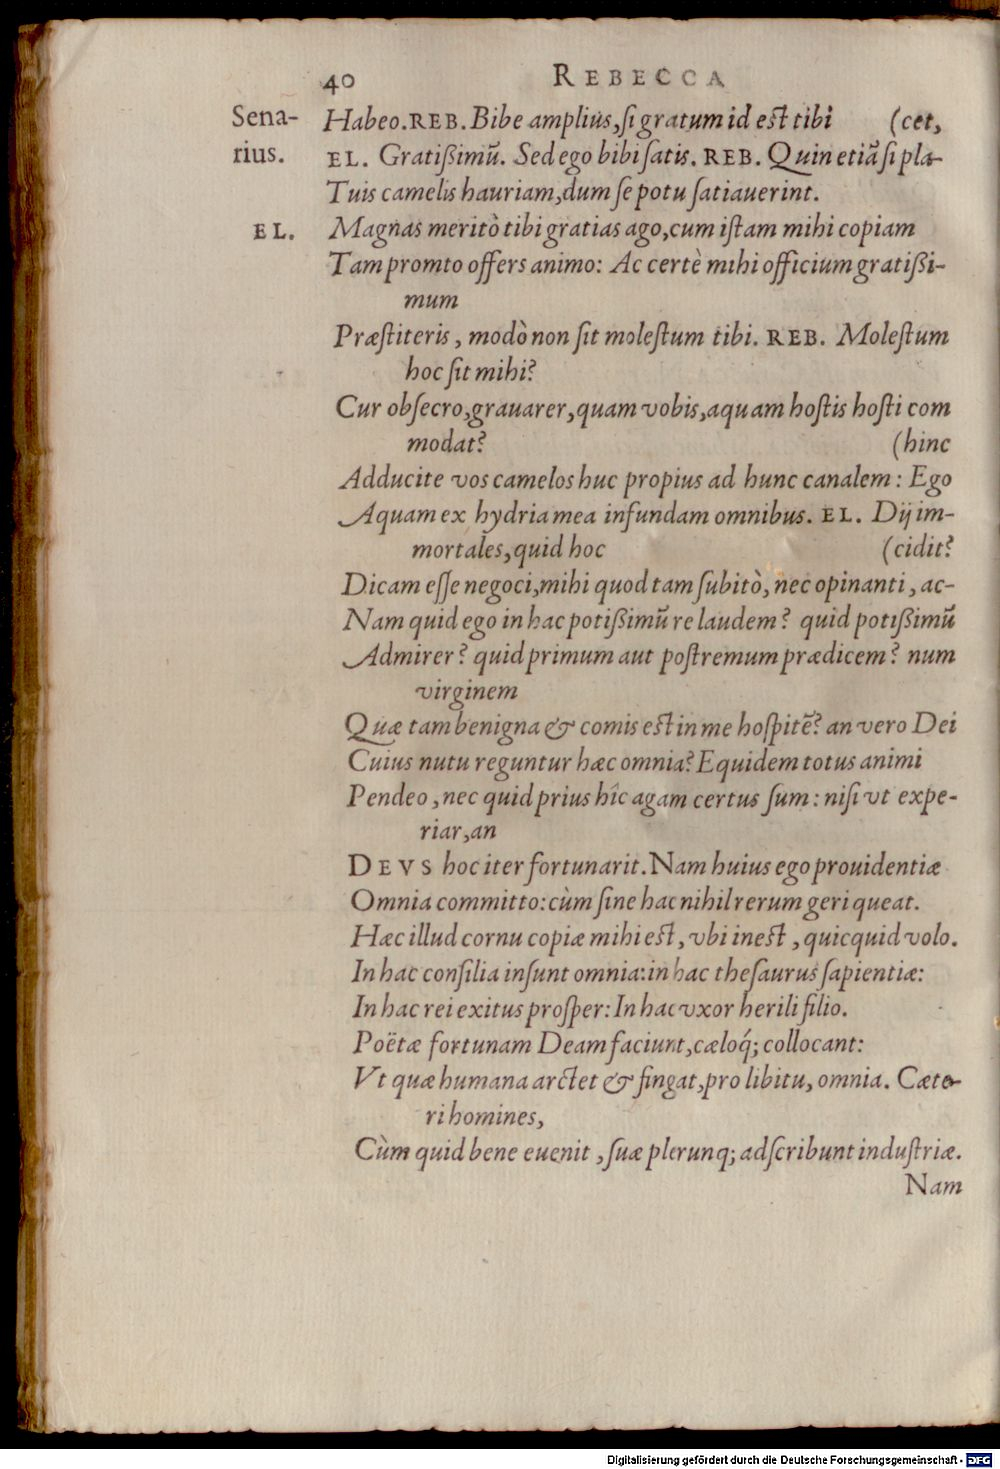 40 REBECCA
Sena- Habeo. REB. Bibe ampliùs, ſi gratum id eſt tibi (cet,
rius. EL. Gratißimũ. Sed ego bibi ſatis. REB. Quin etiã ſi pla-
Tuis camelis hauriam, dum ſe potu ſatiauerint.
EL. Magnas meritò tibi gratias ago, cum iſtam mihi copiam
Tam promto offers animo: Ac certè mihi officium gratißi-
mum
Præſtiteris, modò non ſit moleſtum tibi. REB. Moleſtum
hoc ſit mihi?
Cur obſecro, grauarer, quam vobis, aquam hoſtis hoſti com
modat? (hinc
Adducite vos camelos huc propius ad hunc canalem: Ego
Aquam ex hydria mea infundam omnibus. EL. Dij im-
mortales, quid hoc (cidit?
Dicam eſſe negoci, mihi quod tam ſubitò, nec opinanti, ac-
Nam quid ego in hac potißimũ re laudem? quid potißimũ
Admirer? quid primum aut poſtremum prædicem? num
virginem
Quæ tam benigna & comis eſt in me hoſpitẽ? an vero Dei
Cuius nutu reguntur hæc omnia? Equidem totus animi
Pendeo, nec quid prius hîc agam certus ſum: niſi vt expe-
riar, an
DEVS hoc iter fortunarit. Nam huius ego prouidentiæ
Omnia committo: cùm ſine hac nihil rerum geri queat.
Hæc illud cornu copiæ mihi eſt, vbi ineſt, quicquid volo.
In hac conſilia inſunt omnia: in hac theſaurus ſapientiæ:
In hac rei exitus proſper: In hac vxor herili filio.
Poëtæ fortunam Deam faciunt, cæloq́; collocant:
Vt quæ humana arctet & fingat, pro libitu, omnia. Cæte-
ri homines,
Cùm quid bene euenit, ſuæ plerunq; adſcribunt induſtriæ.
Nam
Digitalisierung gefördert durch die Deutsche Forschungsgemeinschaft - DFG